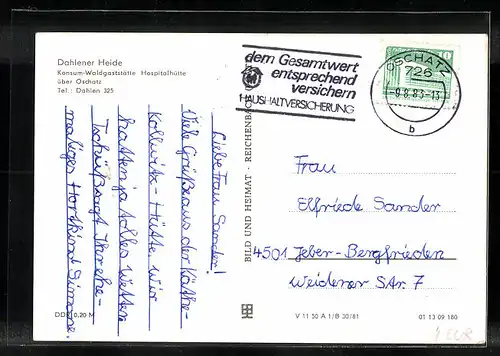 Dahlener Heide
Konsum-Waldgaststätte Hospitalhütte
über Oschatz
Tel.: Dahlen 325
dem Gesamtwert
entsprechend
versichern
HAUSHALTVERSICHERUNG
OSCHATZ
726
-9.8.83-13
b
10
Liebe Frau Sander!
Viele Grüße aus der Käthe-
Kollwitz-Hütte. Wir
hatten ja tolles Wetter.
Tschüß sagt Ihr ehe-
maliges Hortkind Simone.
BILD UND HEIMAT · REICHENBACH
Frau
Elfriede Sander
4501 Jeber-Bergfrieden
Weidener Str. 7
DDR 0,20 M
V 11 50 A 1/B 30/81
01 13 09 180
1 EUR